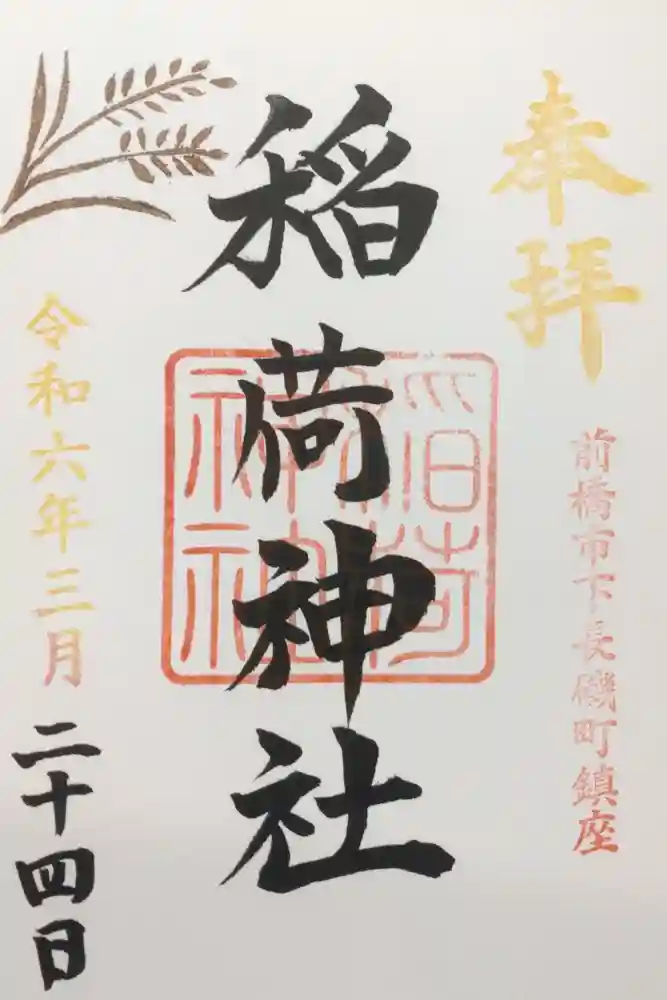 奉拝
前橋市下長磯町鎮座
稲荷神社
令和六年三月
二十四日